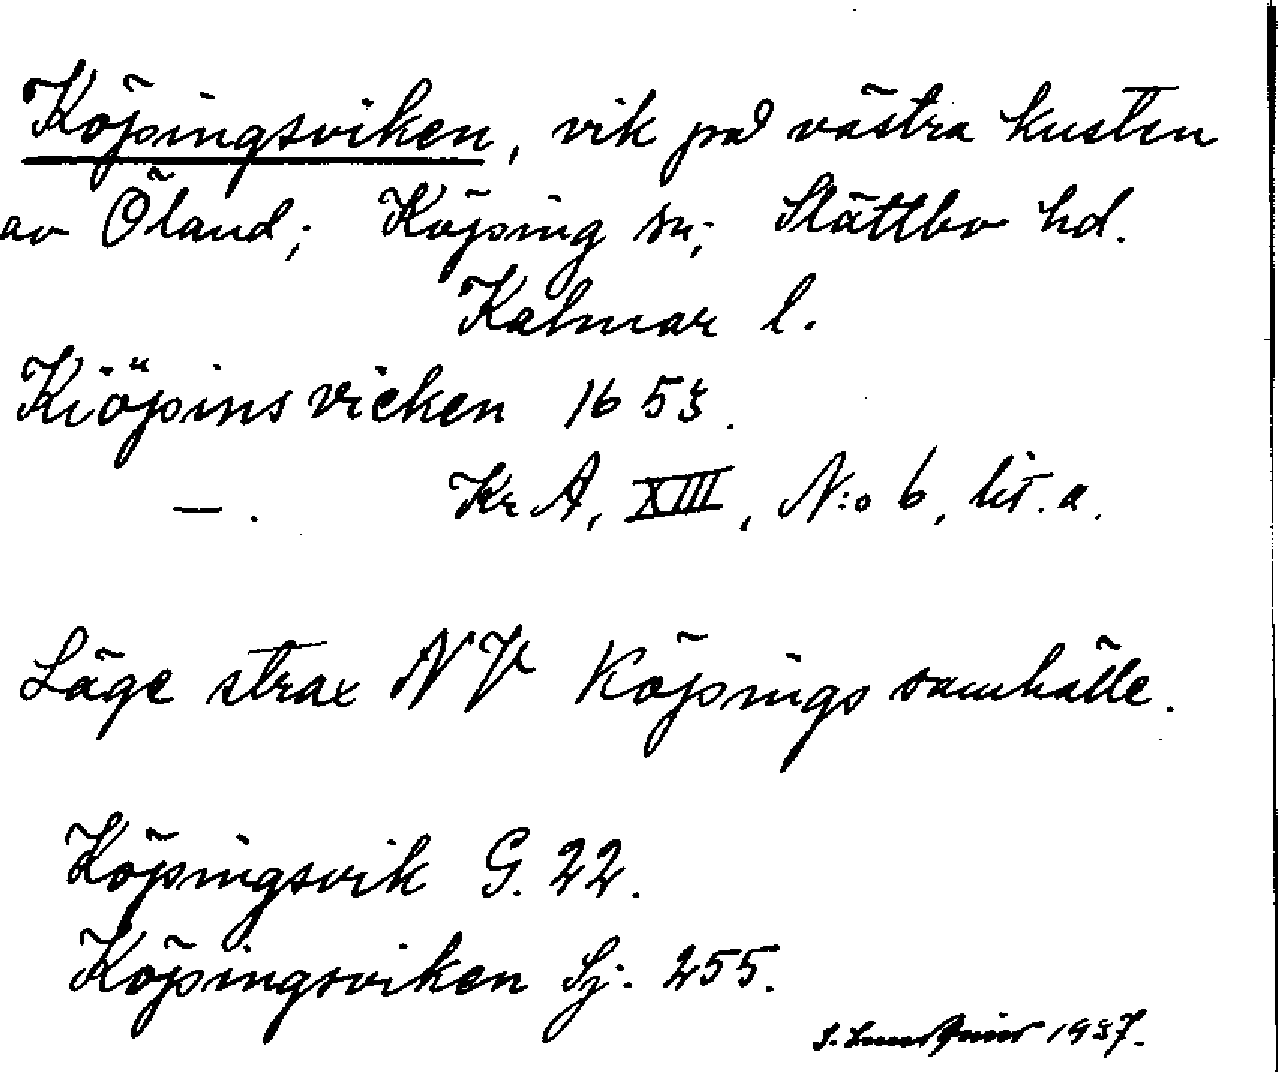 Köpingsviken, vik på västra kusten
av Öland; Köping sn; Slättbo hd.
Kalmar l.
Kiöpinsvicken 1653.
— . KrA, XIII, N:o 6, lit. a.
Läge strax NV Köpings samhälle.
Köpingsvik G. 22.
Köpingsviken Sj. 255.
S. 1937.